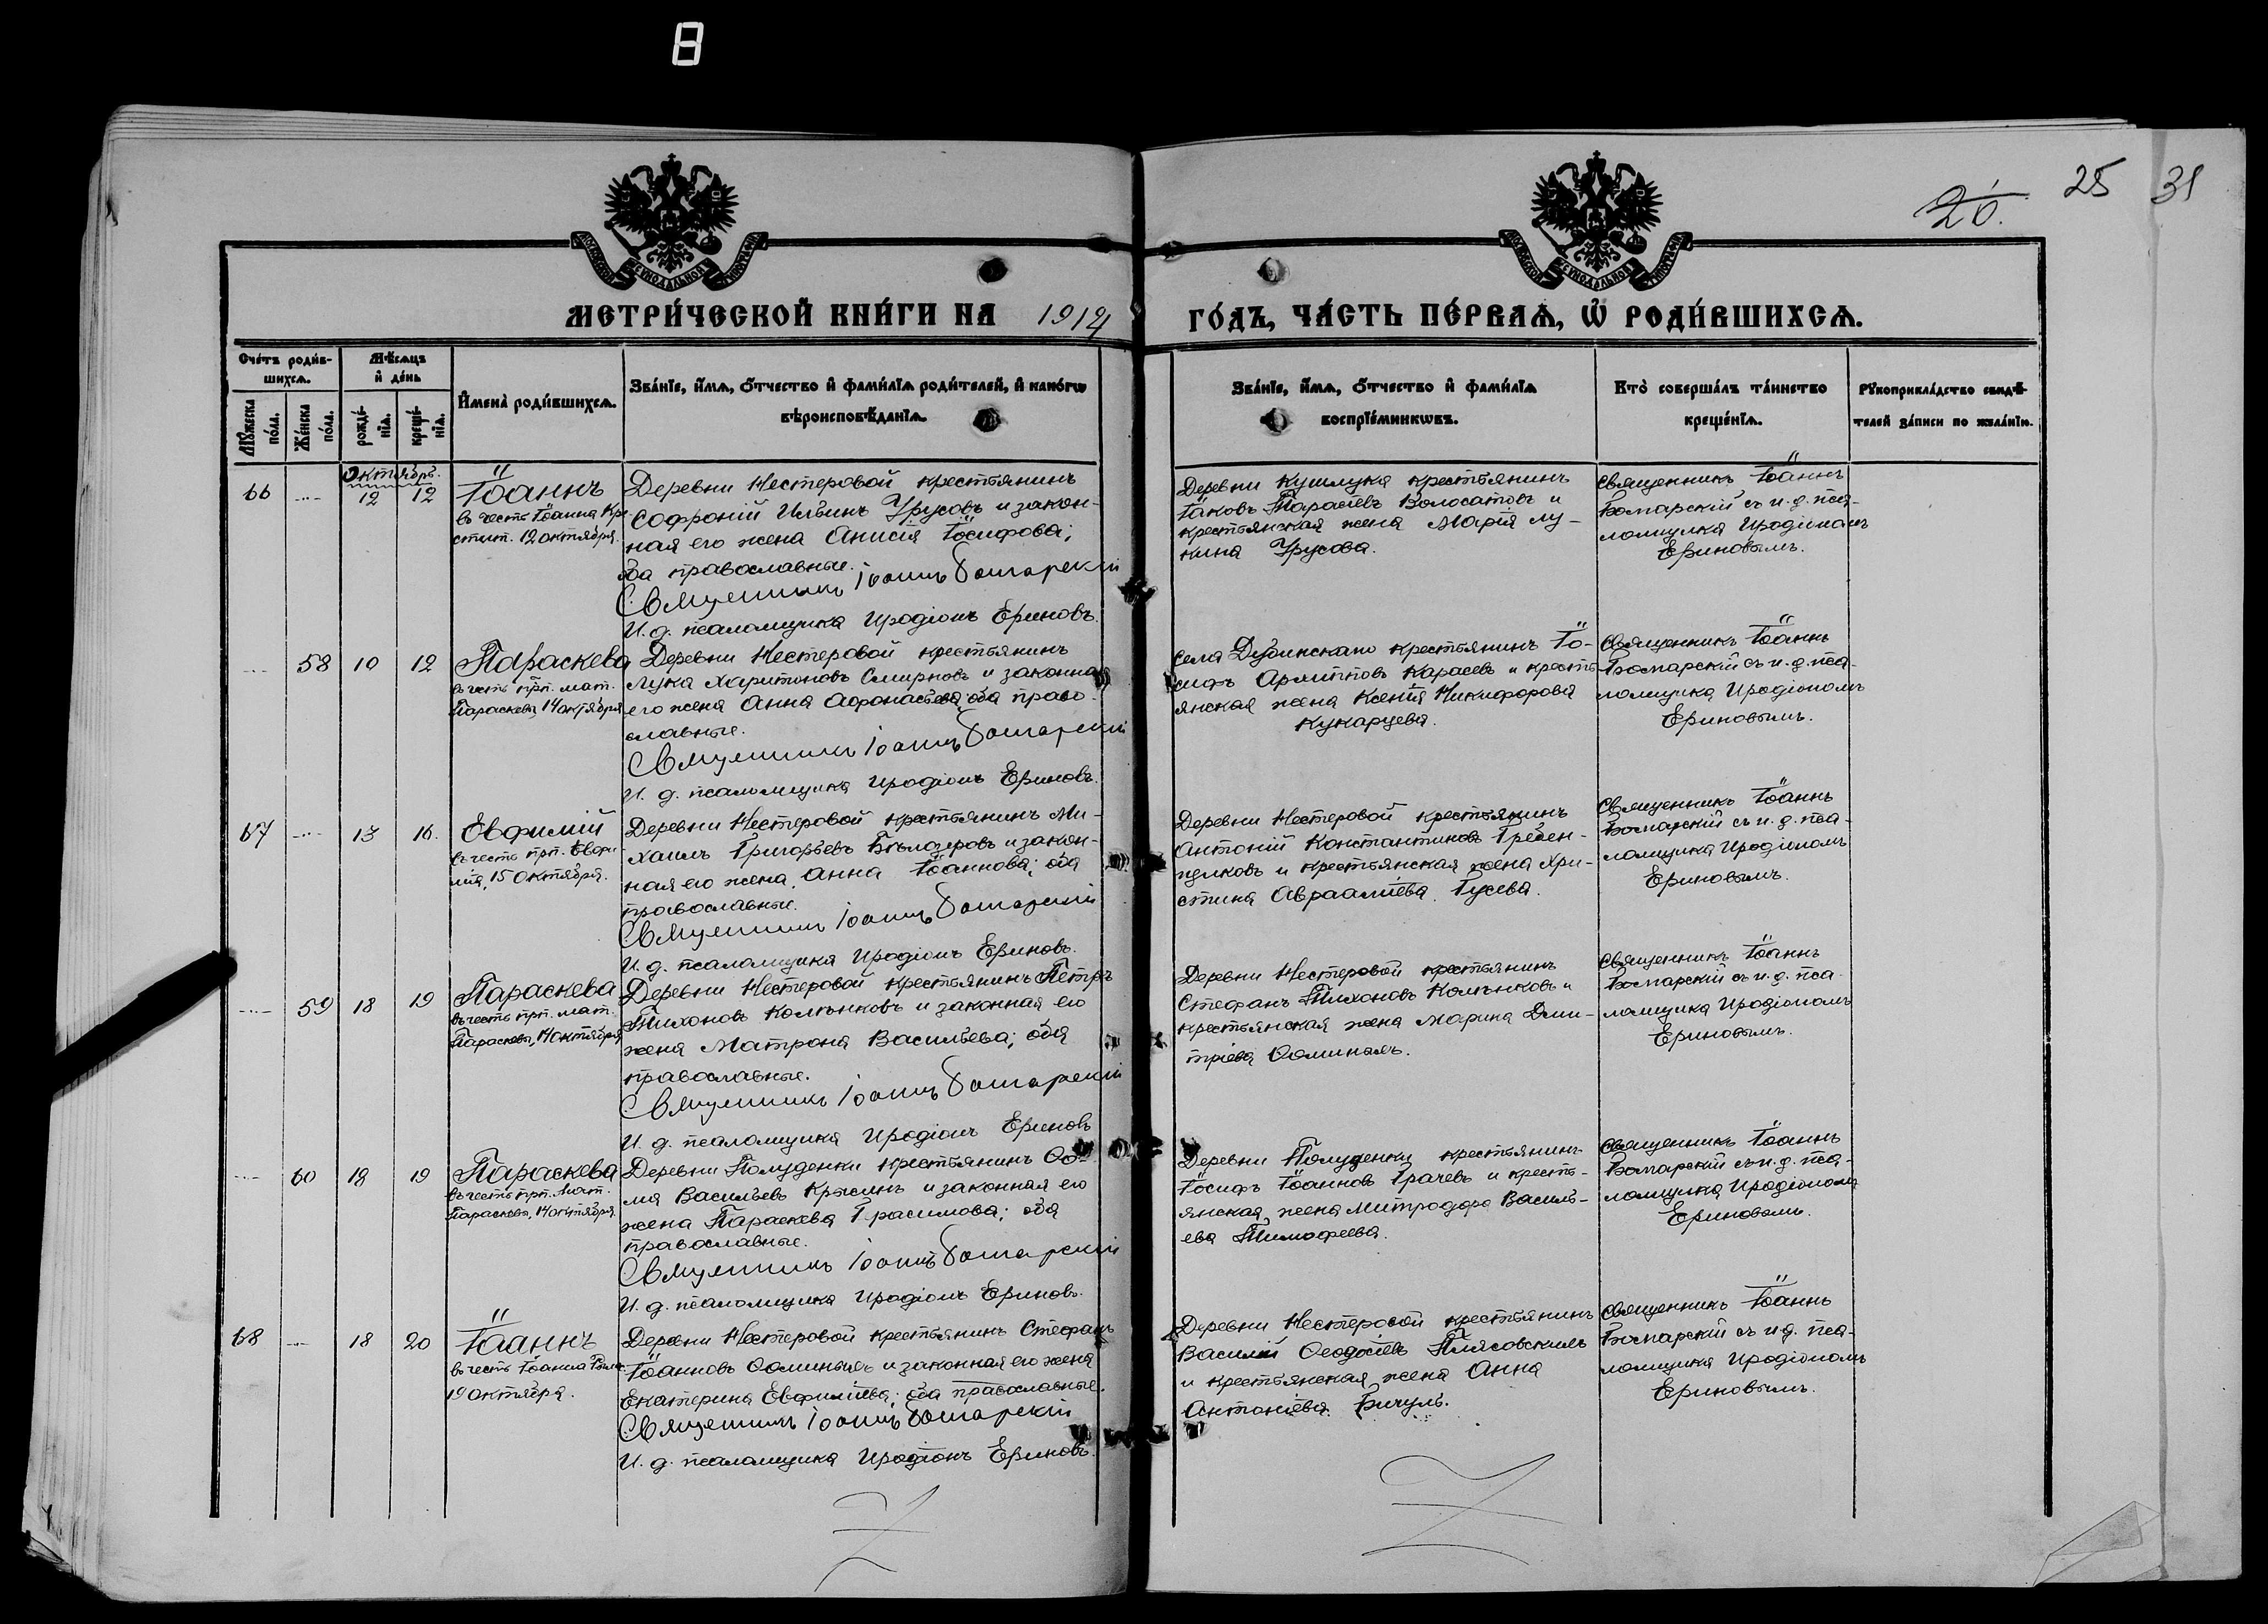 8
20.
25
31
МОСКОВСКОЙ СѴНОДАЛЬНОЙ ТИПОГРАФІИ
МОСКОВСКОЙ СѴНОДАЛЬНОЙ ТИПОГРАФІИ
МЕТРИ́ЧЕСКОЙ КНИ́ГИ НА 1914
ГО́ДЪ, ЧА́СТЬ ПЕ́РВАѦ, Ѡ҆ РОДИ́ВШИХСѦ.
Сче́тъ роди́в-
шихсѧ.
Мѣ́сѧцъ
и҆ де́нь
Мꙋ́жеска
по́ла.
Же́нска
по́ла.
рожде́-
нїѧ.
креще́-
нїѧ.
И҆мена̀ роди́вшихсѧ.
Зва́нїе, и҆́мѧ, ѻ҆́тчество и҆ фами́лїѧ роди́телей, и҆ како́гѡ
вѣроисповѣ́данїѧ.
Зва́нїе, и҆́мѧ, ѻ҆́тчество и҆ фами́лїѧ
воспрїе́мникѡвъ.
Кто̀ соверша́лъ та́инство
креще́нїѧ.
Рꙋкоприкла́дство свидѣ́-
телей за́писи по жела́нїю.
Октябрь.
66 12 12
Іоаннъ
въ честь Іоанна Кре-
стит. 12 октября.
Деревни Нестеровой крестьянинъ
Софроній Ильинъ Урусовъ и закон-
ная его жена Анисія Іосифова;
оба православные.
Священникъ Іоаннъ Бомарскій
И. д. псаломщика Иродіонъ Ериновъ.
Деревни Кушлука крестьянинъ
Іаковъ Тарасіевъ Волосатовъ и
крестьянская жена Марія Лу-
кина Урусова.
Священникъ Іоаннъ
Бомарскій съ и. д. пса-
ломщика Иродіономъ
Ериновымъ.
58 10 12
Параскева
въ честь прп. мат.
Параскевы, 14 октября
Деревни Нестеровой крестьянинъ
Лука Харитоновъ Смирновъ и законная
его жена Анна Афонасьева; оба право-
славные.
Священникъ Іоаннъ Бомарскій
И. д. псаломщика Иродіонъ Ериновъ.
Села Дубинскаго крестьянинъ Іо-
сифъ Караевъ и кресть-
янская жена Ксенія Никифорова
Кукарцева.
Священникъ Іоаннъ
Бомарскій съ и. д. пса-
ломщика Иродіономъ
Ериновымъ.
67 13 16.
Евфимій
въ честь прп. Евфи-
мія, 15 октября.
Деревни Нестеровой крестьянинъ Ми-
хаилъ Григорьевъ Бѣлозеровъ и закон-
ная его жена, Анна Іоаннова; оба
православные.
Священникъ Іоаннъ Бомарскій
И. д. псаломщика Иродіонъ Ериновъ.
Деревни Нестеровой крестьянинъ
Антоній Константиновъ Гребен-
щиковъ и крестьянская жена Хри-
стина Авраамiева Гусева.
Священникъ Іоаннъ
Бомарскій съ и. д. пса-
ломщика Иродіономъ
Ериновымъ.
59 18 19
Параскева
въ честь прп. мат.
Параскевы, 14 октября
Деревни Нестеровой крестьянинъ Петръ
Тихоновъ Колѣнковъ и законная его
жена Матрона Васильева; оба
православные.
Священникъ Іоаннъ Бомарскій
И. д. псаломщика Иродіонъ Ериновъ
Деревни Нестеровой крестьянинъ
Стефанъ Тихоновъ Колѣнковъ и
крестьянская жена Марина Дми-
тріева Ѳоминыхъ.
Священникъ Іоаннъ
Бомарскій съ и. д. пса-
ломщика Иродіономъ
Ериновымъ.
60 18 19
Параскева
въ честь прп. мат.
Параскевы, 14 октября
Деревни Полуденки крестьянинъ Ѳо-
ма Васильевъ Крысинъ и законная его
жена Параскева Герасимова; оба
православные.
Священникъ Іоаннъ Бомарскій
И. д. псаломщика Иродіонъ Ериновъ.
Деревни Полуденки крестьянинъ
Іосифъ Іоанновъ Грачевъ и кресть-
янская жена Митродора Василь-
ева Тимофеева.
Священникъ Іоаннъ
Бомарскій съ и. д. пса-
ломщика Иродіономъ
Ериновымъ.
68 18 20
Іоаннъ
въ честь Іоанна Рыльс.
19 октября.
Деревни Нестеровой крестьянинъ Стефанъ
Іоанновъ Ѳоминыхъ и законная его жена
Екатерина Евфиміева; оба православные.
Священникъ Іоаннъ Бомарскій
И. д. псаломщика Иродіонъ Ериновъ.
Деревни Нестеровой крестьянинъ
Василій Ѳеодосіевъ Плясовскихъ
и крестьянская жена Анна
Антоніева Бичуль.
Священникъ Іоаннъ
Бомарскій съ и. д. пса-
ломщика Иродіономъ
Ериновымъ.